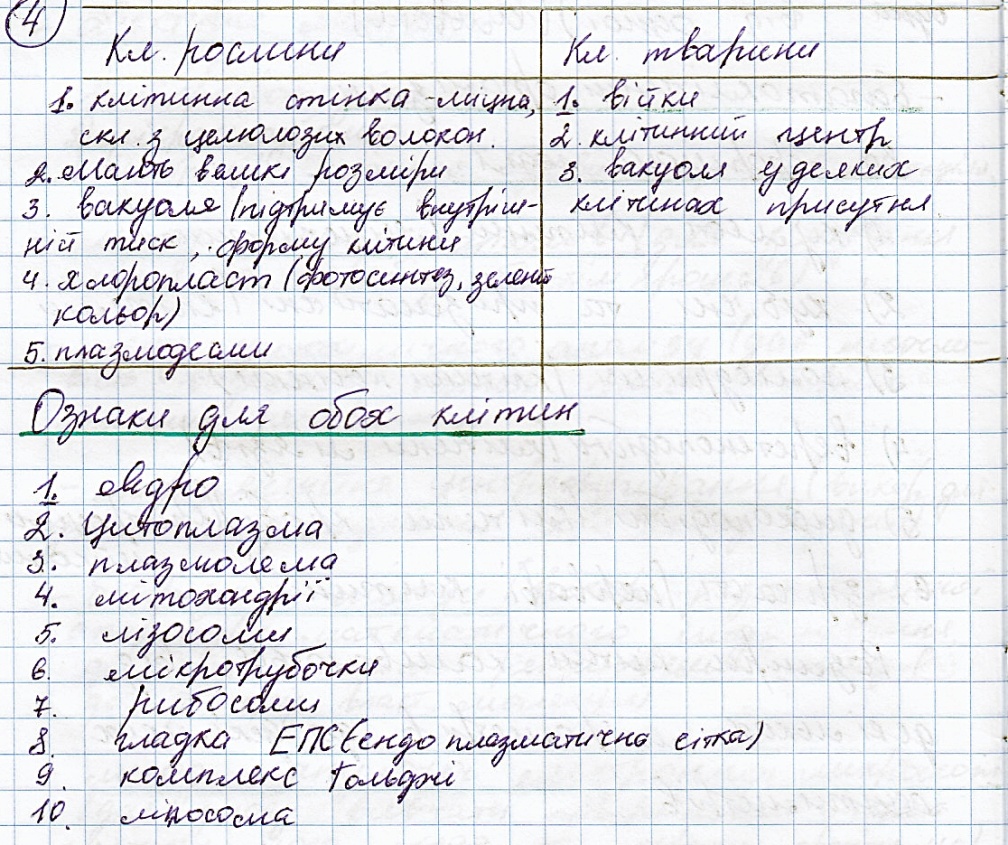 4
Кл. рослини
1. клітинна стінка - міцна,
скл. з целюлозих волокон.
2. Мають великі розміри
3. вакуоля (підтримує внутріш-
ній тиск, форму клітини
4. хлоропласт (фотосинтез, зелений
кольор)
5. плазмодесми
Кл. тварини
1. війки
2. клітинний центр
3. вакуоля у деяких
клітинах присутня
Ознаки для обох клітин
1. Ядро
2. Цитоплазма
3. плазмолема
4. мітохондрії
5. лізосоми
6. мікротрубочки
7. рибосоми
8. гладка ЕПС (ендоплазматична сітка)
9. комплекс Гольджі
10. ліпосома